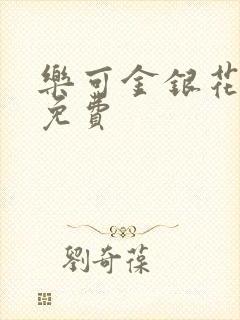 樂可金銀花
免費
劉奇葆